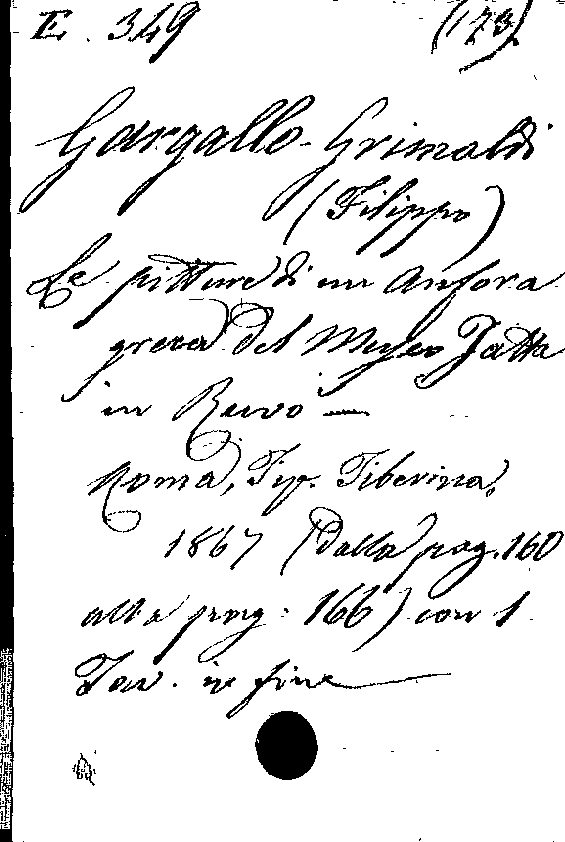 E. 349 (173)
Gargallo-Grimaldi
(Filippo)
Le pitture di un Anfora
greca del Museo Jatta
in Ruvo —
Roma, Tip. Tiberina,
1867 (dalla pag. 160
alla pag: 166) con 1
Tav. in fine